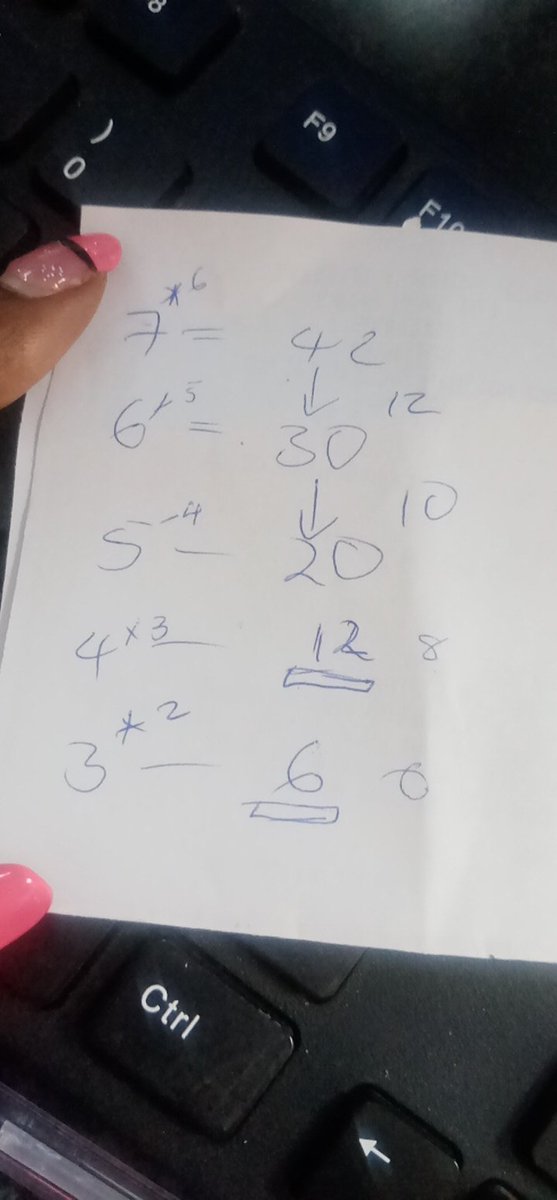 8
)
0
F9
F10
7 * 6 = 42
6 × 5 = 30 12
5 - 4 — 20 10
4 × 3 — 12 8
3 * 2 — 6 6
Ctrl